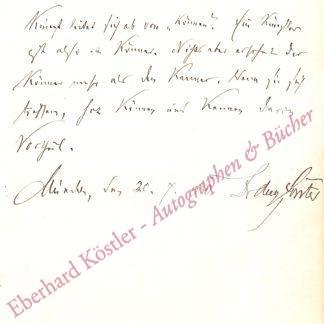 Kunst leitet sich ab von „Können". Ein Künstler
ist also ein Könner. Nichts aber erfreut den
Könner mehr als der Kenner. Wenn sie sich
treffen, hat Können und Kennen davon
Vorteil.
München, den 20. 7.
Eberhard Köstler - Autographen & Bücher